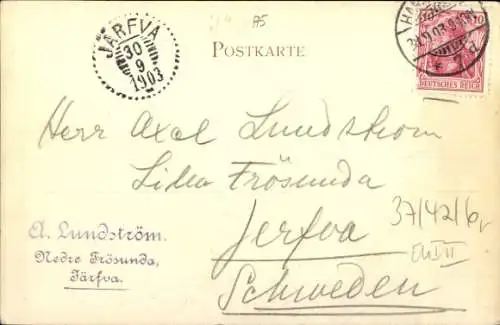 JÄRFVA
30
9
1903
A5
POSTKARTE
10
DEUTSCHES REICH
Herr Axel Lundstrom
Lilla Frösunda
Jerfva
Schweden
37/42/6
A. Lundström.
Nedre Frösunda,
Järfva.